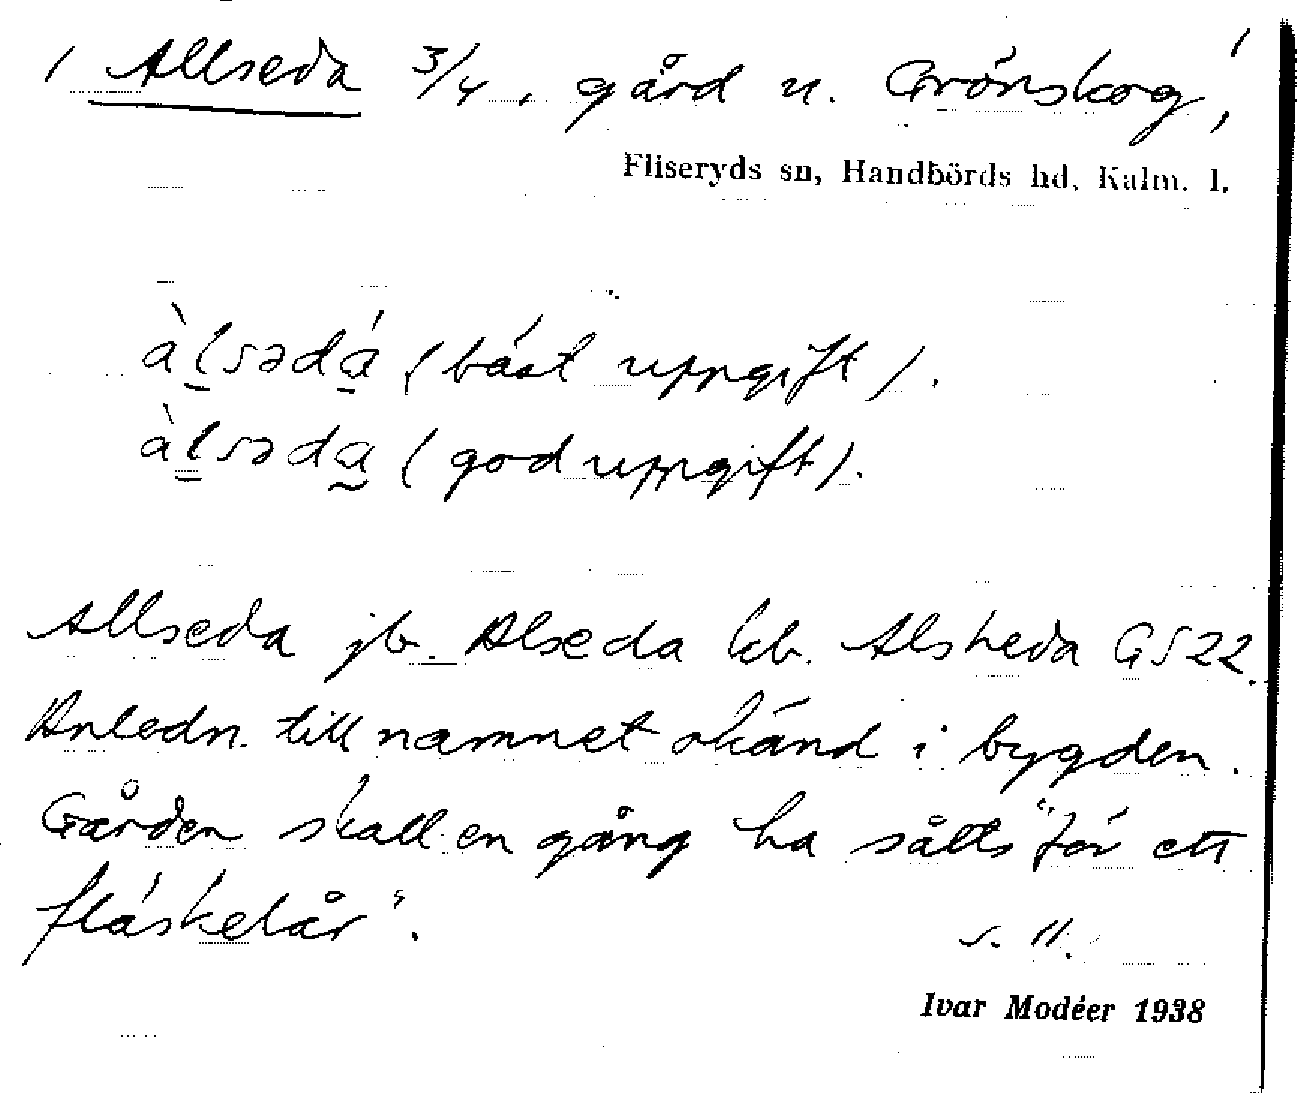 / Allseda 3/4, gård u. Grönskog, /
Fliseryds sn, Handbörds hd, Kalm. l.
àlsədá (bäst uppgift).
àlsəda (god uppgift).
Allseda jb. Alseda kb. Alsheda GS22.
Anledn. till namnet okänd i bygden.
Gården skall en gång ha sålts "för ett
fläskelår".
s. 11.
Ivar Modéer 1938